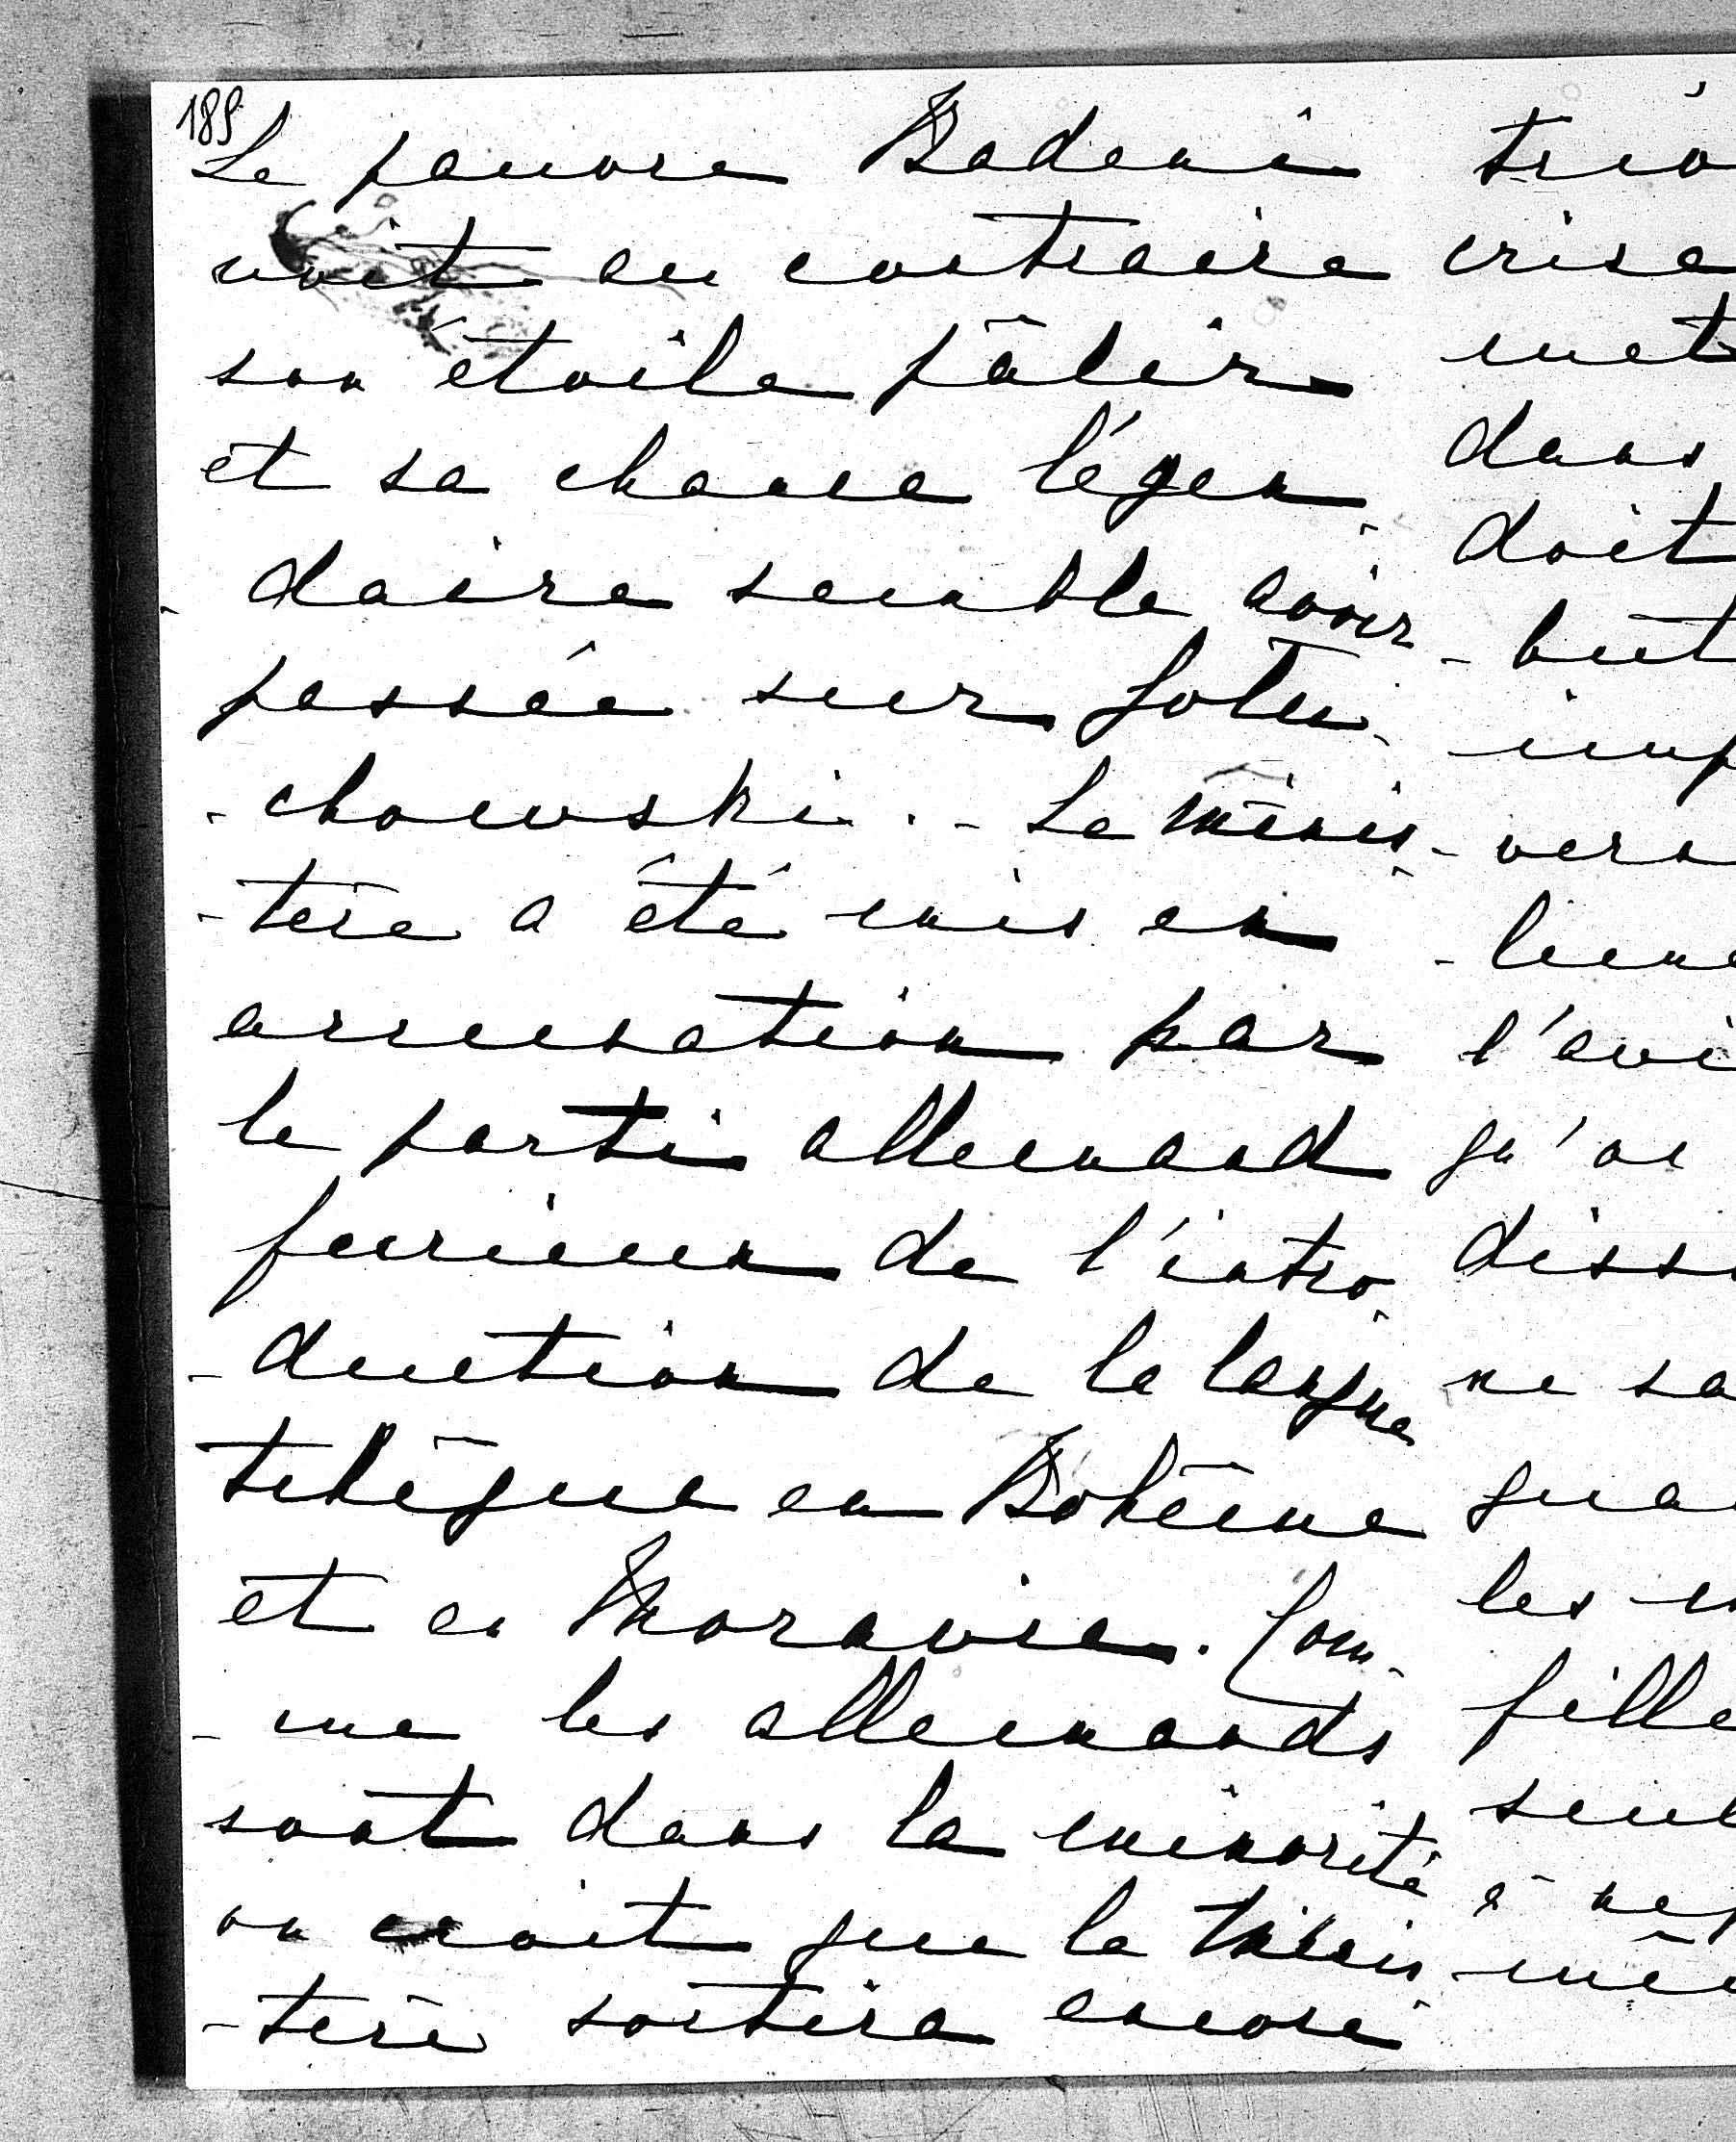 189
Le pauvre Badeni
voit au contraire
son étoile pâlir
et sa chance légen-
-daire semble avoir
passée sur Golu-
-chowski. - Le minis-
-tère a été mis en
accusation par
le parti allemand
furieux de l'intro-
-duction de la langue
tchèque en Bohême
et en Moravie. Com-
-me les allemands
sont dans la minorité
on croit que le Minis-
-tère sortira encore
trio
crise
met
dans
doit
-but
imp
-vers
-lieme
l'avi
qu'on
disso
ne sa
qua
les
fille
seul